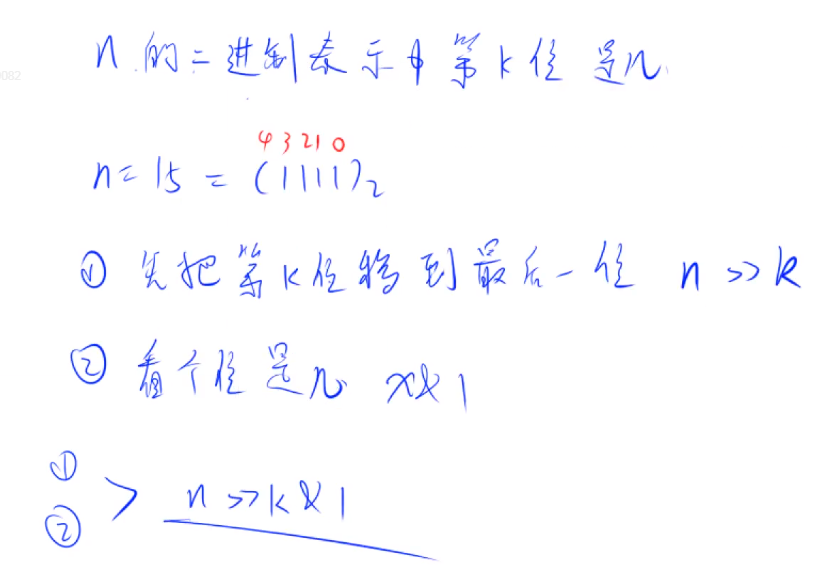 n的二进制表示中第k位是几
43210
n=15=(1111)₂
① 先把第k位移到最后一位 n>>k
② 看个位是几 x&1
①
② > n>>k&1